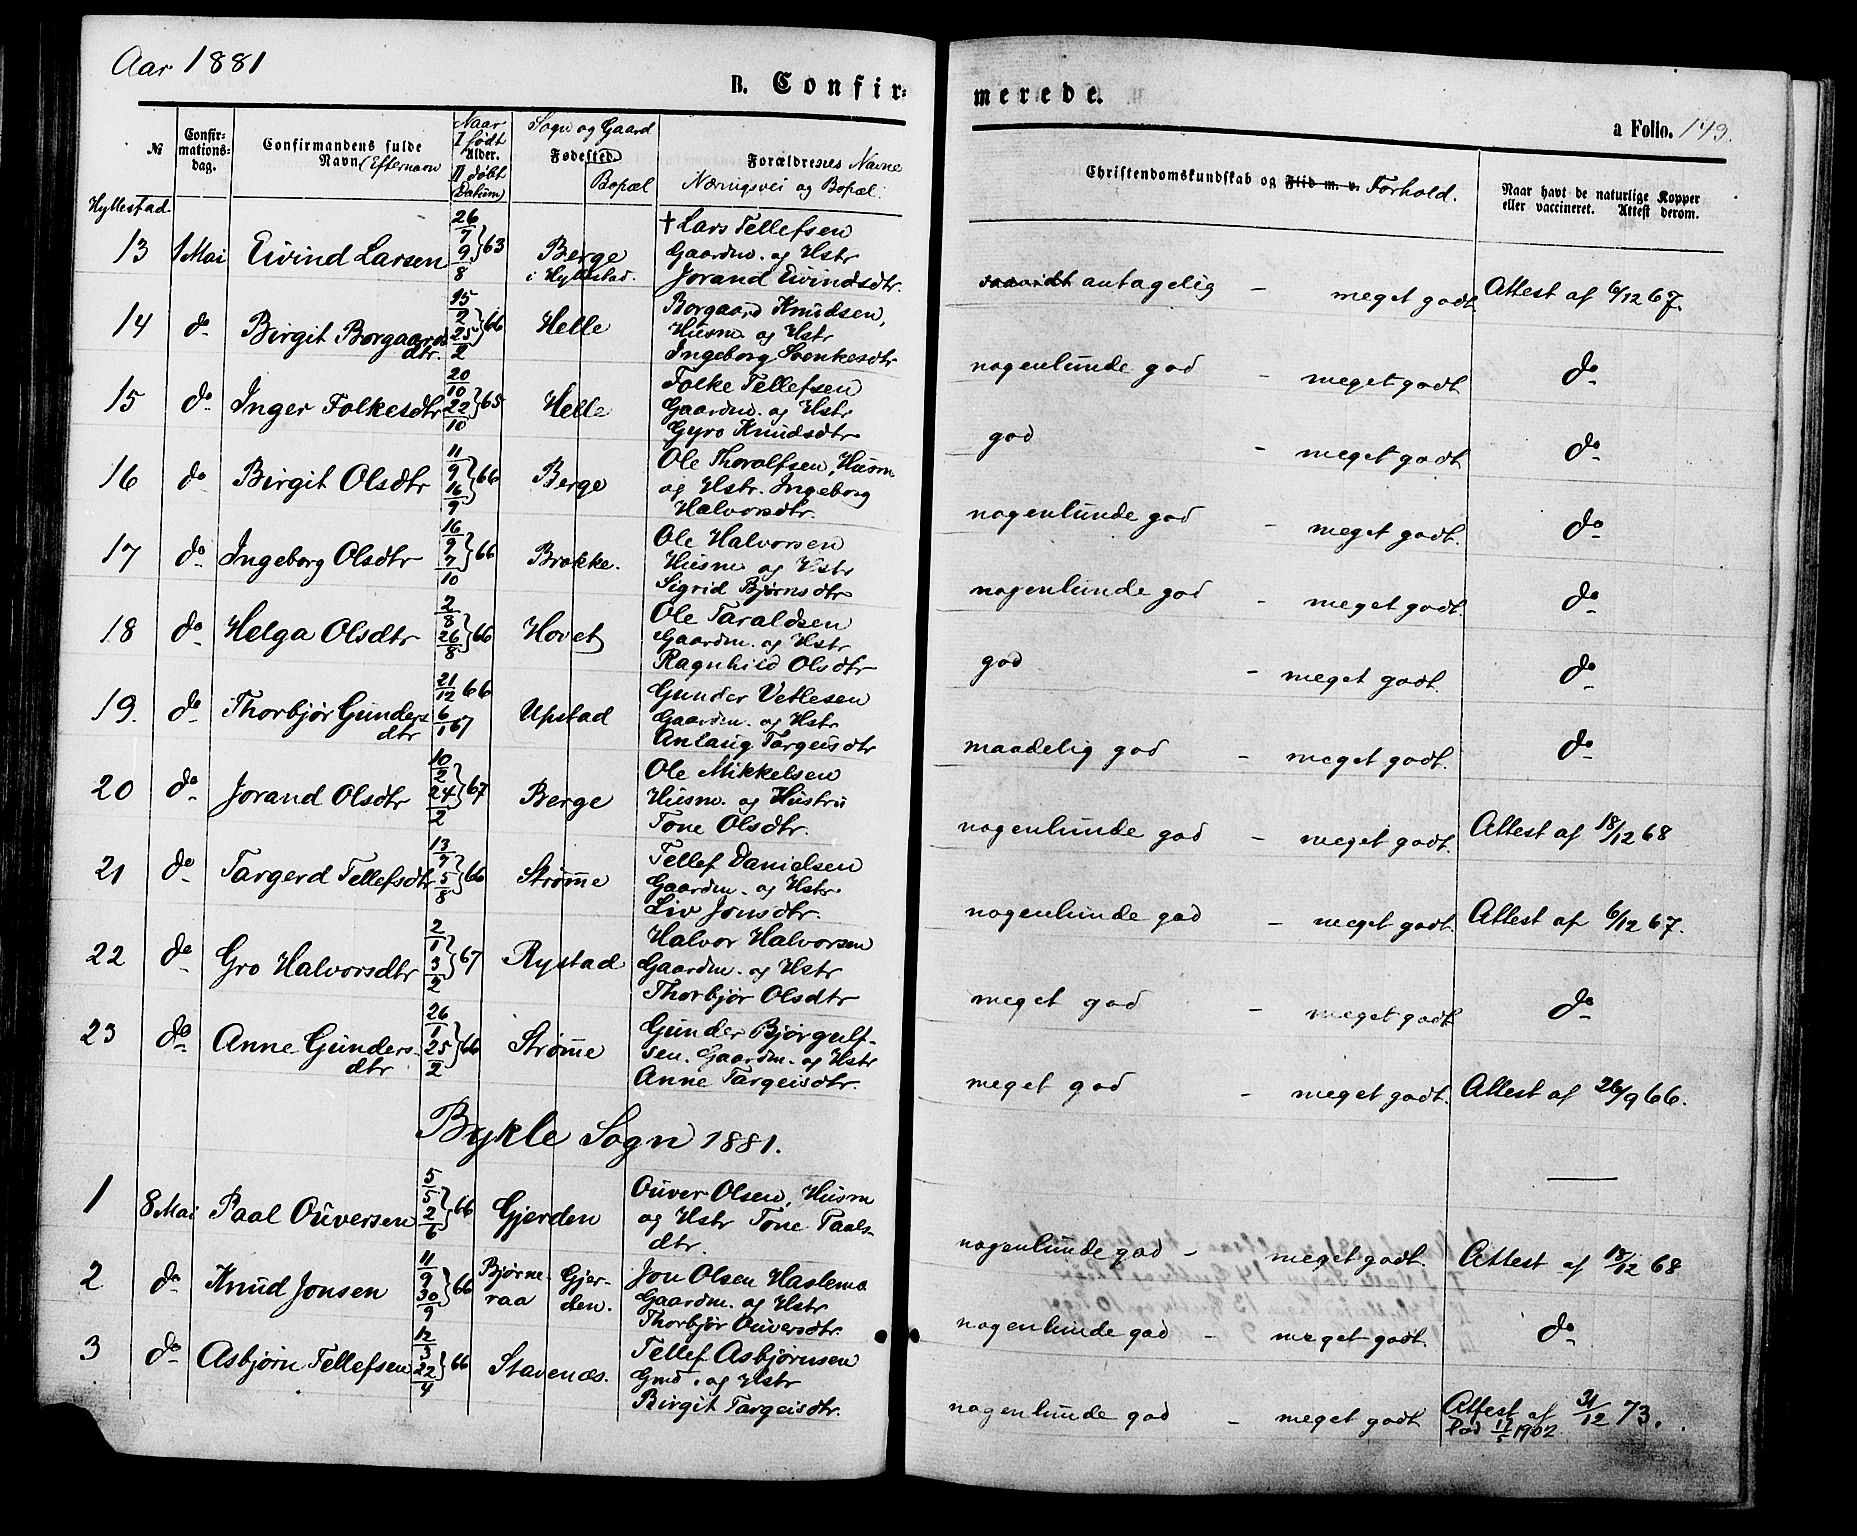 Aar 1881
B. Confirmerede.
a Folio. 143.
№
Confirmationsdag.
Confirmandens fulde Navn (Efternavn
Naar I født Alder. II døbt (Datum)
Sogn og Gaard Fødested. Bopæl
Forældrenes Navne Næringsvei og Bopæl.
Christendomskundskab og Flid m. v. Forhold.
Naar havt de naturlige Kopper eller vaccineret. Attest derom.
Hyllestad
13 1 Mai Eivind Larsen 26/7 9/8 }63 Berge i Hyllestad. † Lars Tellefsen Gaardm. og Hstr Jorand Eivindsdtr. antagelig - meget godt. Attest af 6/12 67.
14 do Birgit Borgaards dtr. 15/2 25/2 }66 Helle Borgaard Knudsen, Husm og Hstr Ingeborg Svenkesdtr nogenlunde god - meget godt do
15 do Inger Folkesdtr 20/10 22/10 }65 Helle Folke Tellefsen Gaardm. og Hstr Gyro Knudsdtr god - meget godt do
16 do Birgit Olsdtr 11/9 16/9 }66 Berge Ole Thoralfsen, Husm og Hstr. Ingeborg Halvorsdtr. nogenlunde god - meget godt. do
17 do Ingeborg Olsdtr 16/9 7/10 }66 Brokke. Ole Halvorsen Husm og Hstr Sigrid Bjørnsdtr nogenlunde god - meget godt. do
18 do Helga Olsdtr 2/8 26/8 }66 Hovet Ole Taraldsen Gaardm. og Hstr Ragnhild Olsdtr god - meget godt. do
19. do Thorbjør Gunders dtr 21/12 66 6/1 67 Upstad Gunder Vetlesen Gaardm. og Hstr Anlaug Targeisdtr maadelig god - meget godt. do
20 do Jorand Olsdtr 10/2 24/2 }67 Berge Ole Mikkelsen Husm. og Hustru Tone Olsdtr. nogenlunde god - meget godt. Attest af 18/12 68
21 do Targerd Tellefsdtr 13/7 5/8 }66 Strømme Tellef Danielsen Gaardm. og Hstr. Liv Jonsdtr. nogenlunde god - meget godt. Attest af 6/12 67.
22 do Gro Halvorsdtr 2/1 3/2 }67 Rystad Halvor Halvorsen Gaardm. og Hstr Thorbjør Olsdtr meget god - meget godt do
23 do Anne Gunders- dtr 26/1 25/2 }66 Strømme Gunder Bjørgulfsen. Gaardm. og Hstr Anne Targeisdtr. meget god - meget godt. Attest af 26/9 66.
Bykle Sogn 1881.
1 8 Mai Paal Ouversen 5/5 2/6 }66 Gjerden Ouver Olsen, Husm og Hstr Tone Paalsdtr. nogenlunde god - meget godt. Attest af 18/12 68
2 do Knud Jonsen 11/9 30/9 }66 Bjørneraa Gjerden. Jon Olsen Haslemo Gaardm. og Hstr Thorbjør Ouversdtr. nogenlunde god - meget godt. do
3 do Asbjørn Tellefsen 12/3 22/4 }66 Stavenæs. Tellef Asbjørnsen Gmd. og Hstr Birgit Targeisdtr. nogenlunde god - meget godt Attest af 31/12 73.
1902